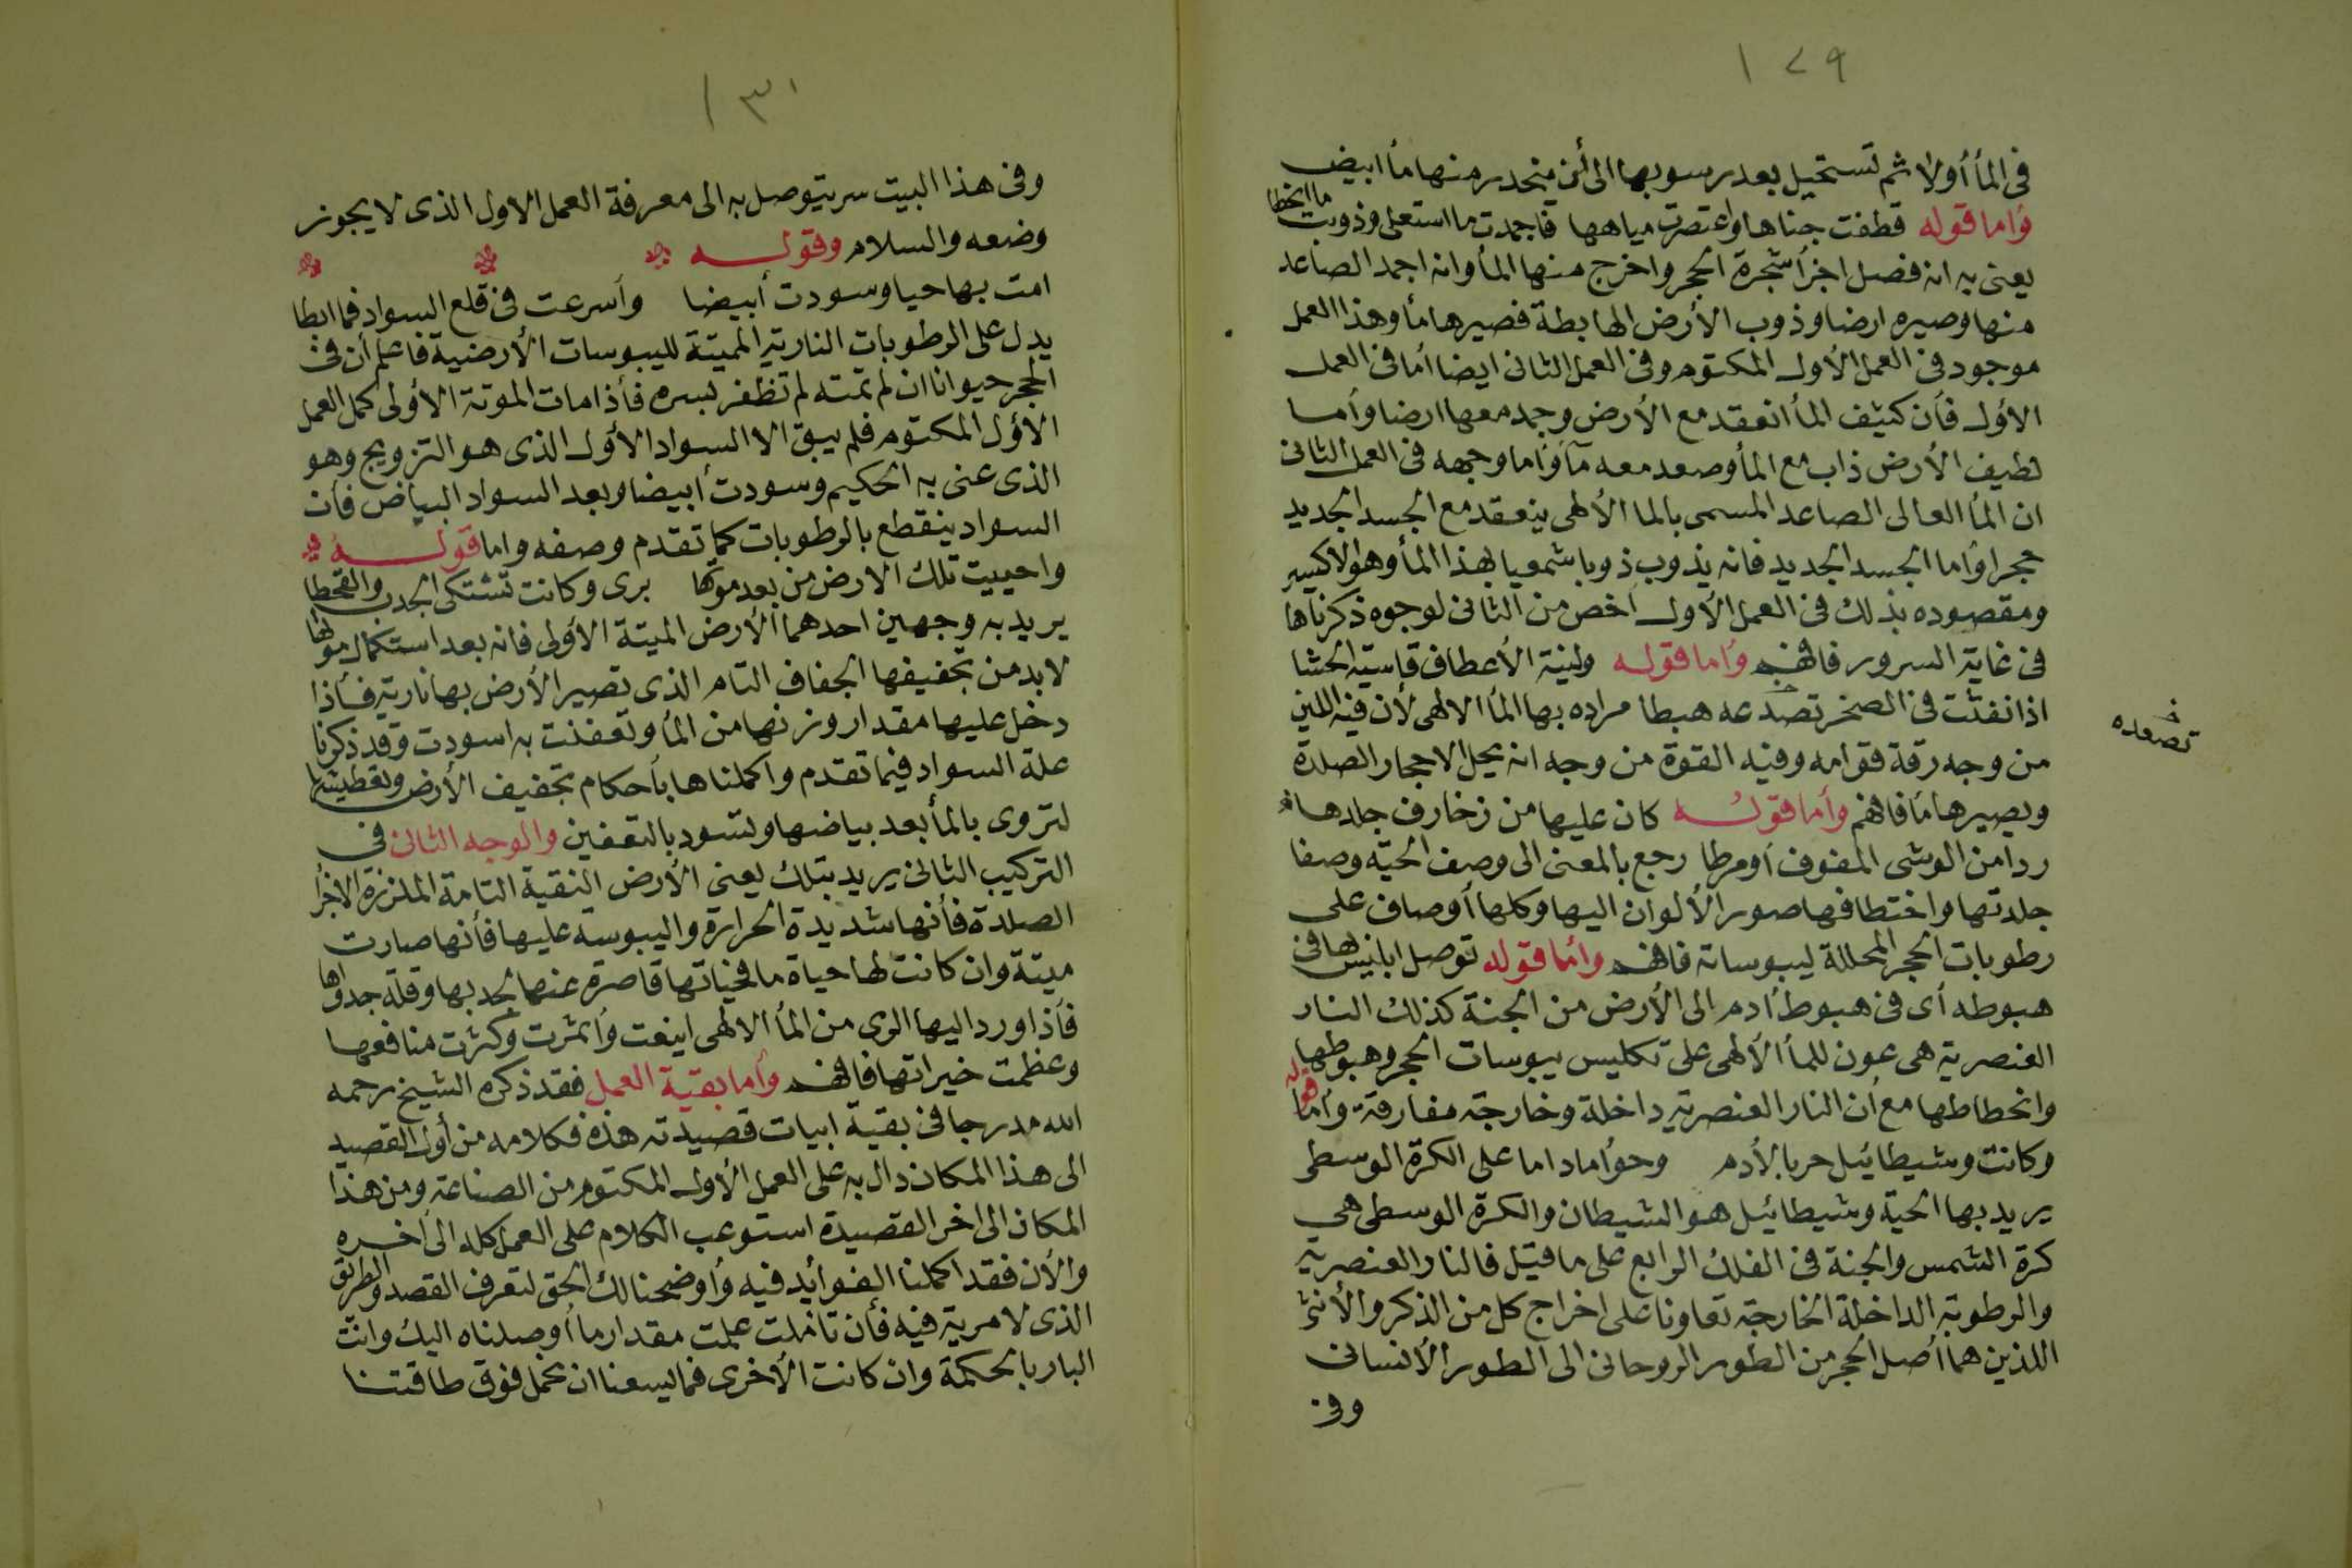 ١٢٩
فى المأ أولا ثم تستحيل بعد رسوبها الى أن ينحدر منها مأ ابيض
وأما قوله قطفت جناها واعتصرت مياهها فاجمدت ما استعلى وذوبت ما انحطا
يعنى به انه فصل اجزأ شجرة الحجر واخرج منها المأ وانه اجمد الصاعد
منها وصيره ارضا وذوب الأرض الهابطة فصيرها مأ وهذا العمل
موجود فى العمل الأول المكتوم وفى العمل الثانى ايضا أما فى العمل
الأول فأن كثيف المأ انعقد مع الأرض وجمد معها ارضا وأما
لطيف الأرض ذاب مع المأ وصعد معه مآ وأما وجهه فى العمل الثانى
ان المأ العالى الصاعد المسمى بالما الألهى ينعقد مع الجسد الجديد
حجرا وأما الجسد الجديد فانه يذوب ذوبا شمعيا بهذا المأ وهو الاكسير
ومقصوده بذلك فى العمل الأول أخص من الثانى لوجوه ذكرناها
فى غاية السرور فافهم وأما قوله ولينة الأعطاف قاسية الحشا
اذا نفثت فى الصخر تصدعه هبطا مراده بها المأ الالهى لأن فيه اللين
تصعده خ
من وجه رقة قوامه وفيه القوة من وجه انه يحل الاحجار الصلدة
ويصيرها مأ فافهم وأما قوله كان عليها من زخارف جلدها
ردا من الوشى المفوف أو مرطا رجع بالمعنى الى وصف الحية وصفا
جلدتها واختطافها صور الألوان اليها وكلها أوصاف على
رطوبات الحجر المحللة ليبوساته فافهم وأما قوله توصل ابليس بها فى
هبوطه أى فى هبوط أدم الى الأرض من الجنة كذلك النار
العنصرية هى عون للمأ الألهى على تكليس يبوسات الحجر وهبوطها
وانحطاطها مع أن النار العنصرية داخلة وخارجة مفارقة وأما قوله
وكانت وشيطائيل حربا لأدم وحوأ ماداما على الكرة الوسطى
يريد بها الحية وشيطائيل هو الشيطان والكرة الوسطى هي
كرة الشمس والجنة فى الفلك الرابع على ما قيل فالنار العنصرية
والرطوبة الداخلة الخارجة تعاونا على اخراج كل من الذكر والأنثى
اللذين هما أصل الحجر من الطور الروحانى الى الطور الأنسانى
وفى
١٣٠
وفى هذا البيت سر يتوصل به الى معرفة العمل الاول الذى لا يجوز
وضعه والسلام وقوله
امت بها حيا وسودت أبيضا وأسرعت فى قلع السواد فما ابطا
يدل على الرطوبات النارية المميتة لليبوسات الأرضية فاعلم أن فى
الحجر حيوانا ان لم تمته لم تظفر بسره فأذا مات الموتة الأولى كمل العمل
الأول المكتوم فلم يبق الا السواد الأول الذى هو التزويج وهو
الذى عنى به الحكيم وسودت أبيضا وبعد السواد البياض فأن
السواد ينقطع بالرطوبات كما تقدم وصفه واما قوله
واحييت تلك الارض من بعد موتها برى وكانت تشتكى الجدب والقحطا
يريد به وجهين احدهما الأرض الميتة الأولى فانه بعد استكمال موتها
لابد من تجفيفها الجفاف التام الذى تصير الأرض بها نارية فأذا
دخل عليها مقدار وزنها من المأ وتعفنت به اسودت وقد ذكرنا
علة السواد فيما تقدم واكملناها بأحكام تجفيف الأرض وتعطيشها
لتروى بالمأ بعد بياضها وتسود بالتعفين والوجه الثانى فى
التركيب الثانى يريد بتلك يعنى الأرض النقية التامة الملززة الاجزأ
الصلدة فأنها شديدة الحرارة واليبوسة عليها فأنها صارت
ميتة وان كانت لها حياة ما فحياتها قاصرة عنها لجدبها وقلة جدواها
فأذا ورد اليها الرى من المأ الالهى اينعت وأثمرت وكثرت منافعها
وعظمت خيراتها فافهم وأما بقية العمل فقد ذكره الشيخ رحمه
الله مدرجا فى بقية ابيات قصيدته هذه فكلامه من أول القصيد
الى هذا المكان دال به على العمل الأول المكتوم من الصناعة ومن هذا
المكان الى اخر القصيدة استوعب الكلام على العمل كله الى أخره
والأن فقد اكملنا الفوائد فيه وأوضحنا لك الحق لتعرف القصد والطريق
الذى لا مرية فيه فأن تأملت علمت مقدار ما أوصلناه اليك وانت
البار بالحكمة وان كانت الأخرى فما يسعنا ان نحمل فوق طاقتنا